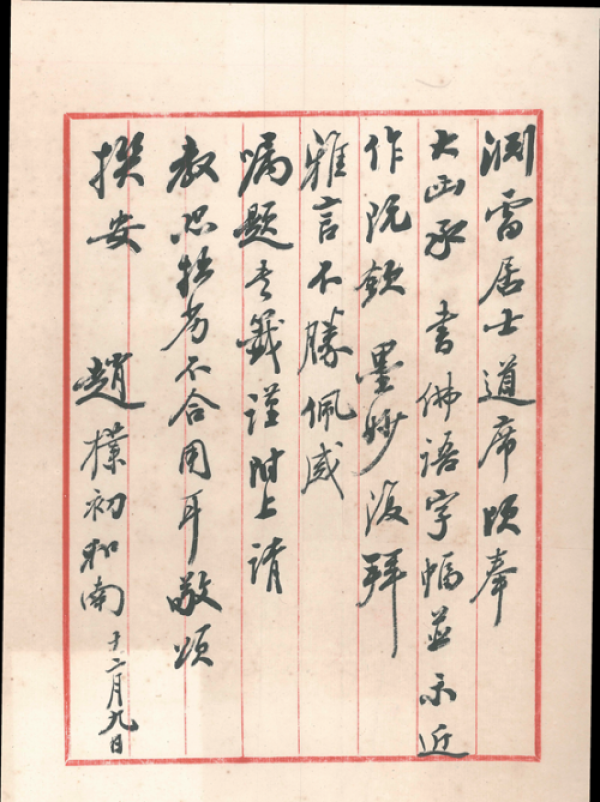 渊雷居士道席頃奉
大函承 書佛語字幅並示近
作既領 墨妙復拜
雅言不勝佩感
嘱题書籤謹附上請
教恐拙劣不合用耳敬頌
撰安 趙樸初和南 十二月九日